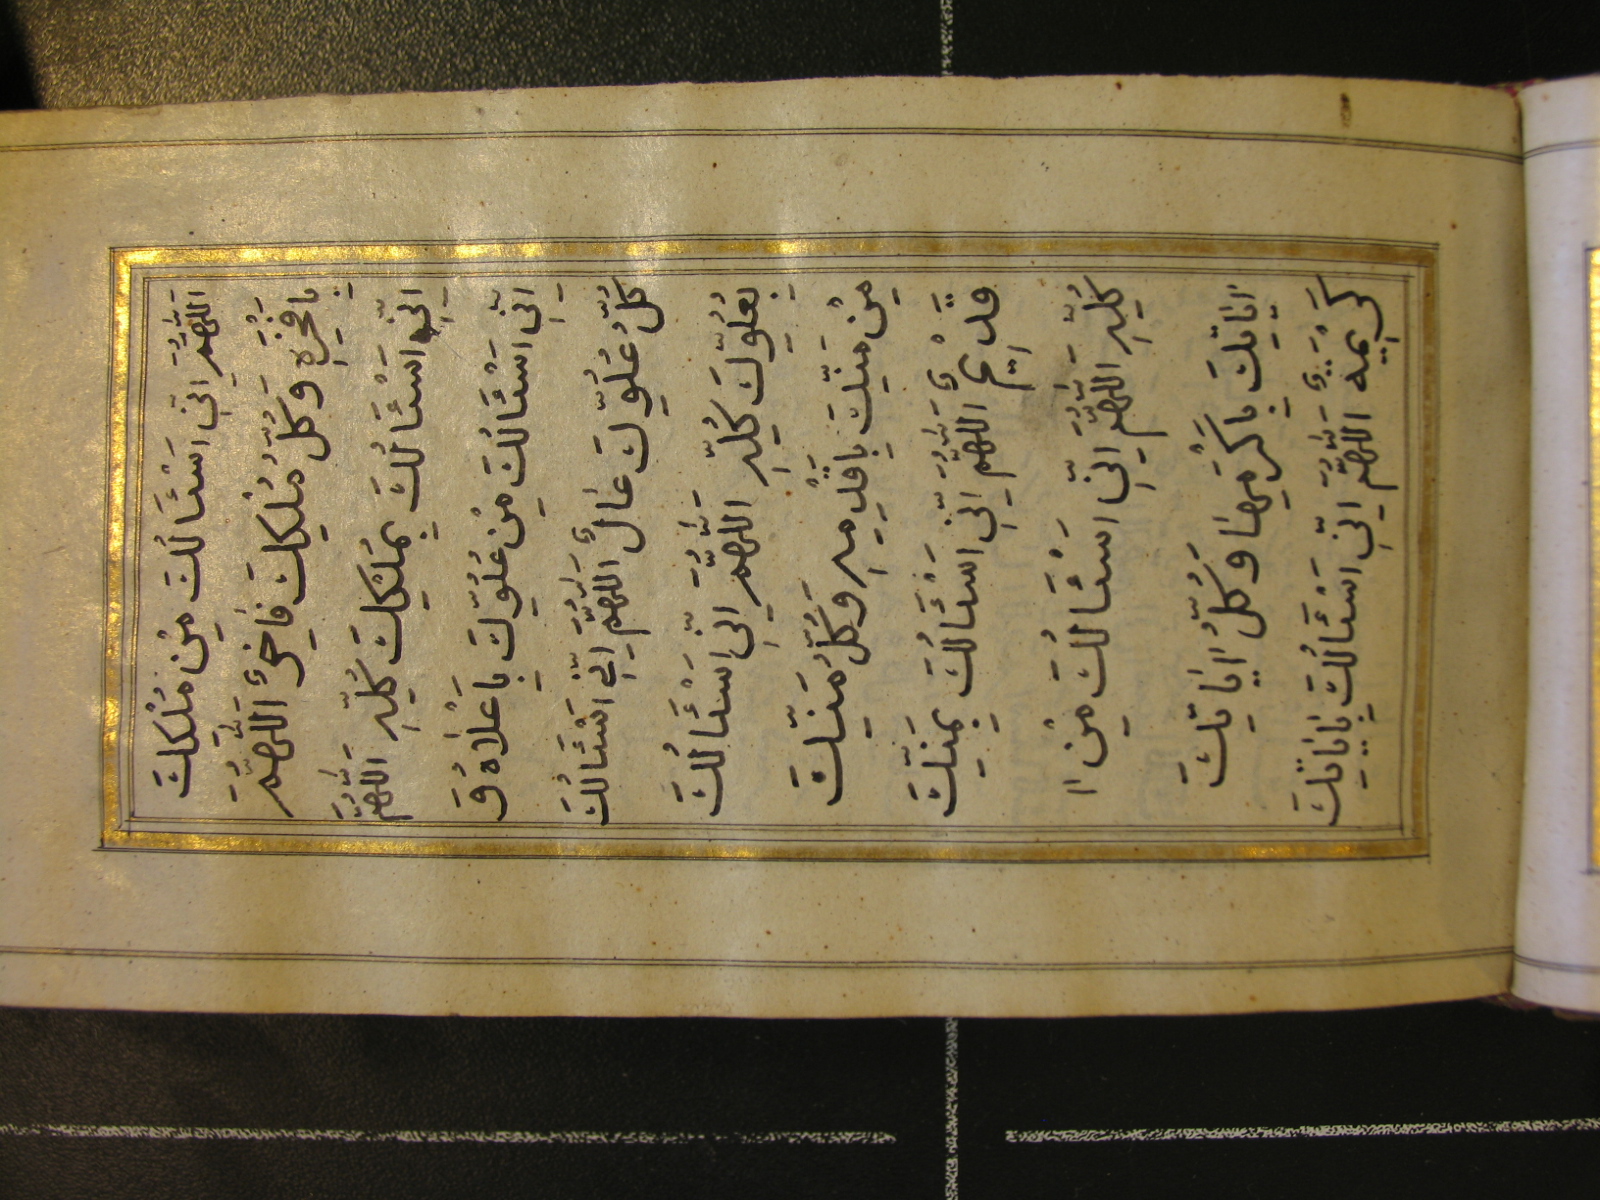 اَللّٰهُمَّ اِنِّي اَسْئَالُكَ مِنْ مُلْكِكَ
بِاَفْخَرِهِ وَكُلُّ مُلْكِكَ فَاخِرٌ اَللّٰهُمَّ
اِنِّي اَسْئَالُكَ بِمُلْكِكَ كُلِّهِ اَللّٰهُمَّ
اِنِّي اَسْئَالُكَ مِنْ عُلُوِّكَ بِاَعْلَاهُ وَ
كُلُّ عُلُوِّكَ عَالٌ اَللّٰهُمَّ اِنِّي اَسْئَالُكَ
بِعُلُوِّكَ كُلِّهِ اَللّٰهُمَّ اِنِّي اَسْئَالُكَ
مِنْ مَنِّكَ بِاَقْدَمِهِ وَكُلُّ مَنِّكَ
قَدِيمٌ اَللّٰهُمَّ اِنِّي اَسْئَالُكَ بِمَنِّكَ
كُلِّهِ اَللّٰهُمَّ اِنِّي اَسْئَالُكَ مِنْ ا
ايَاتِكَ بِاَكْرَمِهَا وَكُلُّ ايَاتِكَ
كَرِيمَه اَللّٰهُمَّ اِنِّي اَسْئَالُكَ بِايَاتِكَ